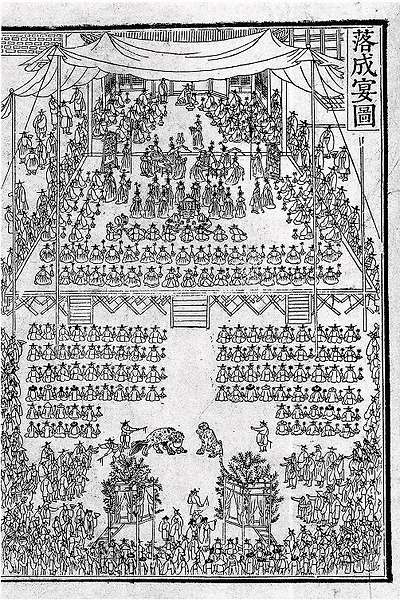 落成宴圖